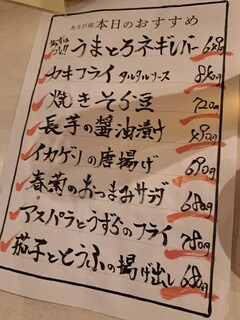 あそび邸 本日のおすすめ
まずはコレ!! うまとろネギレバー 649円
カキフライ タルタルソース 850円
焼きそら豆 720円
長芋の醤油漬け 490円
イカゲソの唐揚げ 690円
春菊のおつまみサラダ 680円
アスパラとうずらのフライ 780円
茄子ととうふの揚げ出し 680円